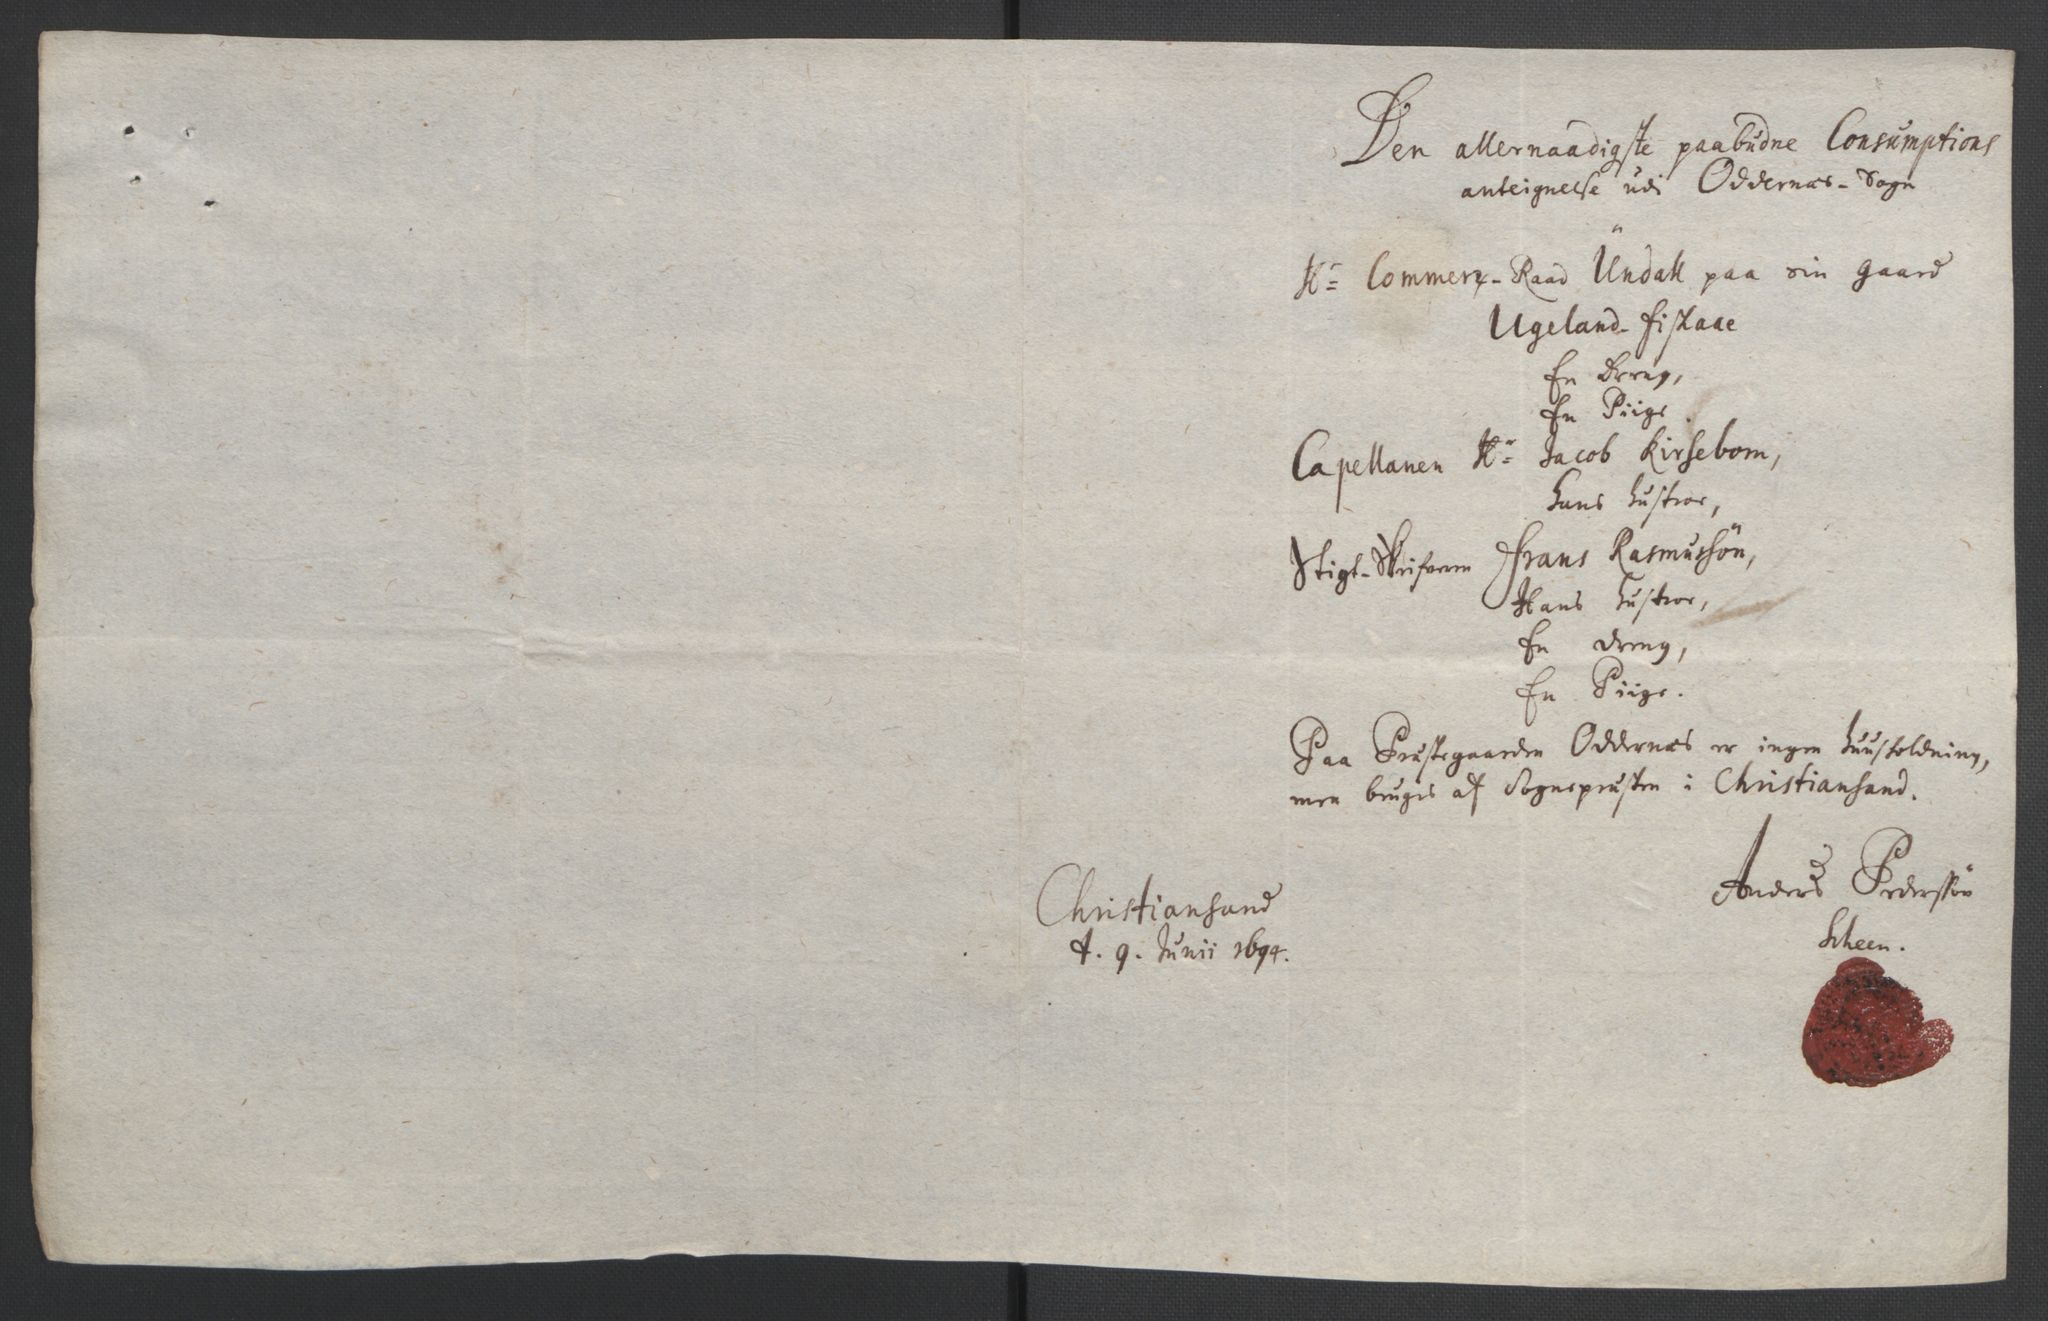 Den allernaadigste paabudne Consumptions
anteignelse udi Oddernæs-Sogn
Hr= Commerz-Raad Undall paa sin gaard
Ugeland-Fiskaae
En Dreng,
En Piige
Capellanen Hr= Jacob Kirsebom,
hans hustroe,
Stigt-Skrifveren Frans Rasmussön,
Hans hustroe,
En dreng,
En Piige.
Paa Præstegaarden Oddernæs er ingen huusholdning,
men bruges af Sognepræsten i Christiansand.
Anders Pederssön
Scheen.
Christiansand
d. 9. Junii 1694.